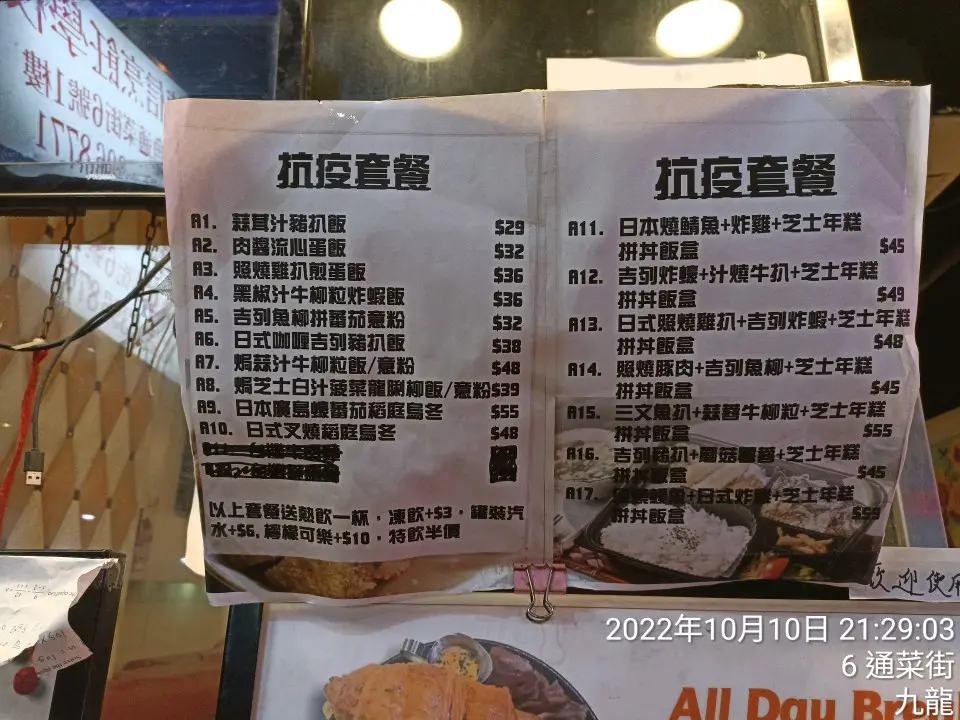 通菜街6號1樓
8771
抗疫套餐
A1. 蒜茸汁豬扒飯 $29
A2. 肉醬流心蛋飯 $32
A3. 照燒雞扒煎蛋飯 $36
A4. 黑椒汁牛柳粒炸蝦飯 $36
A5. 吉列魚柳拼蕃茄意粉 $32
A6. 日式咖喱吉列豬扒飯 $38
A7. 焗蒜汁牛柳粒飯/意粉 $48
A8. 焗芝士白汁菠菜龍脷柳飯/意粉$39
A9. 日本廣島蠔蕃茄稻庭烏冬 $55
A10. 日式叉燒稻庭烏冬 $48
以上套餐送熱飲一杯，凍飲+$3，罐裝汽
水+$6, 檸檬可樂+$10，特飲半價
抗疫套餐
A11. 日本燒鯖魚+炸雞+芝士年糕
拼丼飯盒 $45
A12. 吉列炸蠔+汁燒牛扒+芝士年糕
拼丼飯盒 $49
A13. 日式照燒雞扒+吉列炸蝦+芝士年糕
拼丼飯盒 $48
A14. 照燒豚肉+吉列魚柳+芝士年糕
拼丼飯盒 $45
A15. 三文魚扒+蒜蓉牛柳粒+芝士年糕
拼丼飯盒 $55
A16. 吉列豬扒+蘑菇+芝士年糕
拼丼飯盒 $45
A17. +日式炸+芝士年糕
拼丼飯盒
歡迎使用
2022年10月10日 21:29:03
6 通菜街
九龍
All Day